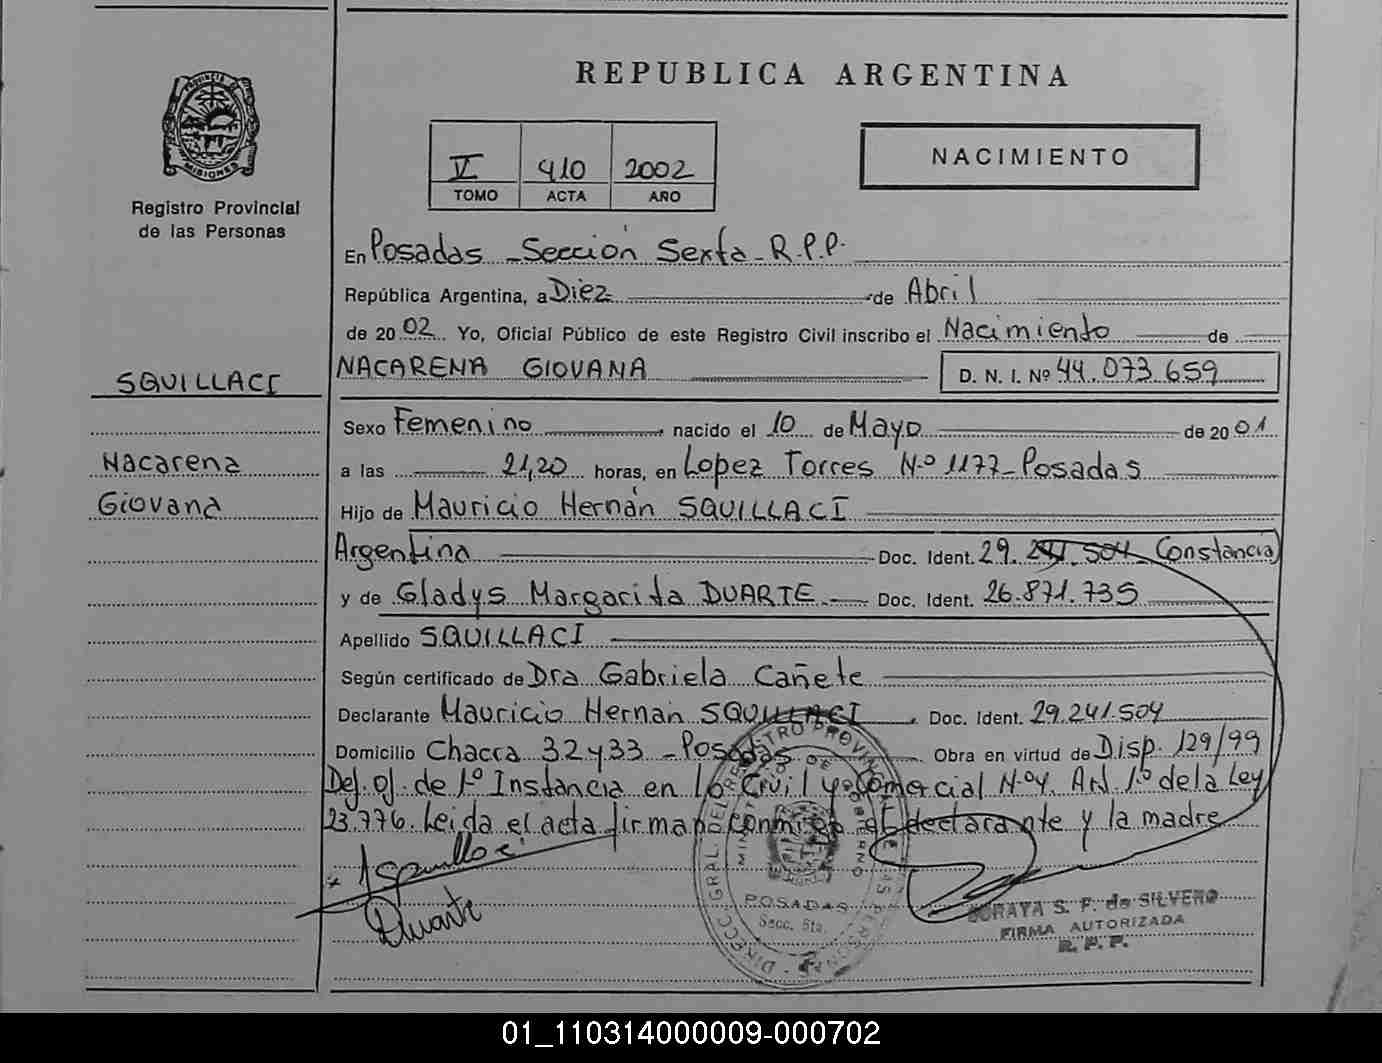 REPUBLICA ARGENTINA
PROVINCIA
MISIONES
Registro Provincial
de las Personas
V 410 2002
TOMO ACTA AÑO
NACIMIENTO
En Posadas - Sección Sexta - R.P.P.
República Argentina, a Diez de Abril
de 2002 Yo, Oficial Público de este Registro Civil inscribo el Nacimiento de
NACARENA GIOVANA D. N. I. Nº 44.073.659
SQUILLACI
Nacarena
Giovana
Sexo Femenino nacido el 10 de Mayo de 2001
a las 21,20 horas, en Lopez Torres Nº 1177 - Posadas
Hijo de Mauricio Hernán SQUILLACI
Argentina Doc. Ident. 29.241.504 Constancia
y de Gladys Margarita DUARTE Doc. Ident. 26.871.735
Apellido SQUILLACI
Según certificado de Dra Gabriela Cañete
Declarante Mauricio Hernán SQUILLACI Doc. Ident. 29.241.504
Domicilio Chacra 32 y 33 - Posadas Obra en virtud de Disp. 129/99
Def. Of. de 1º Instancia en lo Civil y Comercial Nº 4. Art. 1º de la Ley
23.776. Leida el acta firman conmigo el declarante y la madre
Duarte
DIRECC. GRAL. DEL REGISTRO PROVINCIAL DE LAS PERSONAS
MINISTERIO DE GOBIERNO
POSADAS
Secc. 6ta.
SORAYA S. F. de SILVERO
FIRMA AUTORIZADA
R. P. P.
01_110314000009-000702